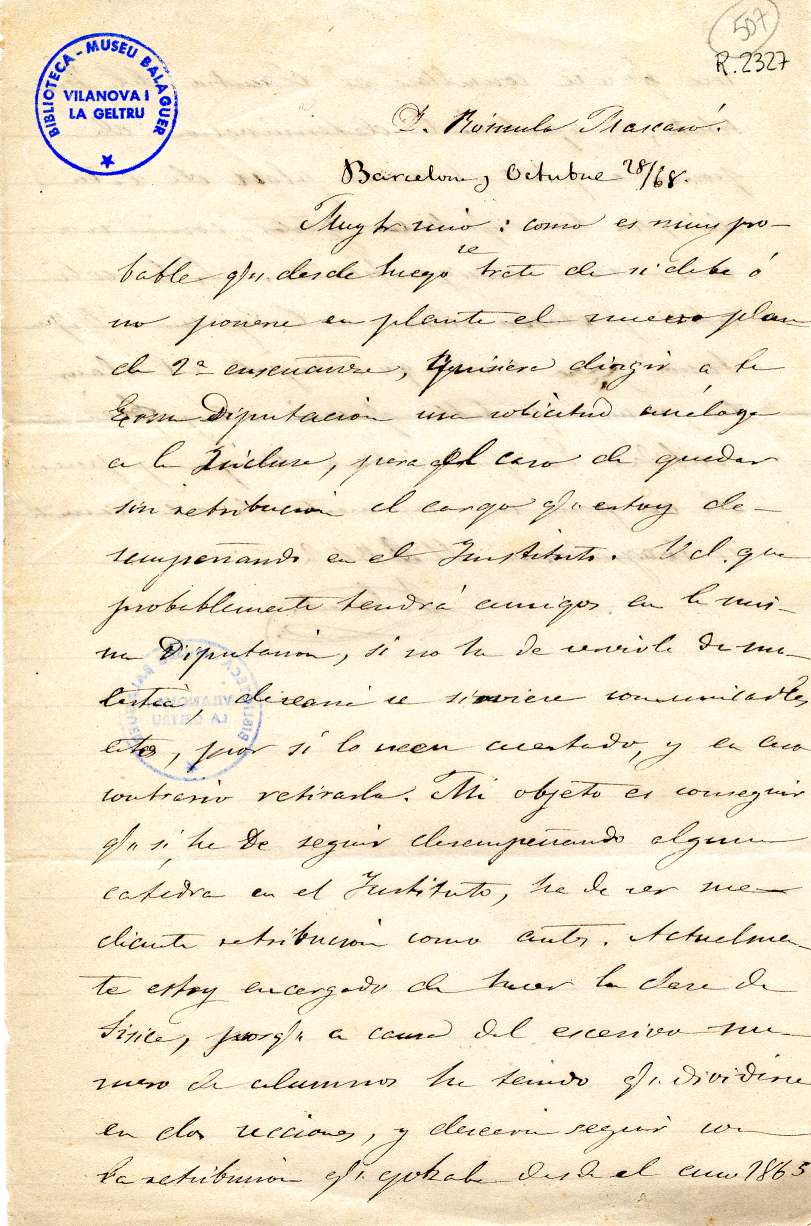 507
R. 2327
BIBLIOTECA - MUSEU BALAGUER
VILANOVA I
LA GELTRU
D. Rómulo Mascaró.
Barcelona, Octubre 28/68.
Muy Sr mio: como es muy pro-
bable qe. desde luego se trate de si debe ó
no ponerse en planta el nuevo plan
de 2ª enseñanza, quisiera dirigir a la
Exma Diputación una solicitud análoga
a la inclusa, para el caso de quedar
sin retribución el cargo qe. estoy de-
sempeñando en el Instituto. Vd. que
probablemente tendrá amigos en la mis-
ma Diputación, si no ha de servirle de mo-
lestia, desearia se sirviese comunicarles
esto, por si lo creen acertado, y en caso
contrario retirarla. Mi objeto es conseguir
qe. si he de seguir desempeñando alguna
catedra en el Instituto, ha de ser me-
diante retribución como antes. Actualmen
te estoy encargado de hacer la clase de
Fisica, porqe. a causa del excesivo nu-
mero de alumnos ha tenido qe. dividirse
en dos secciones, y desearia seguir con
la retribución qe. gozaba desde el año 1863